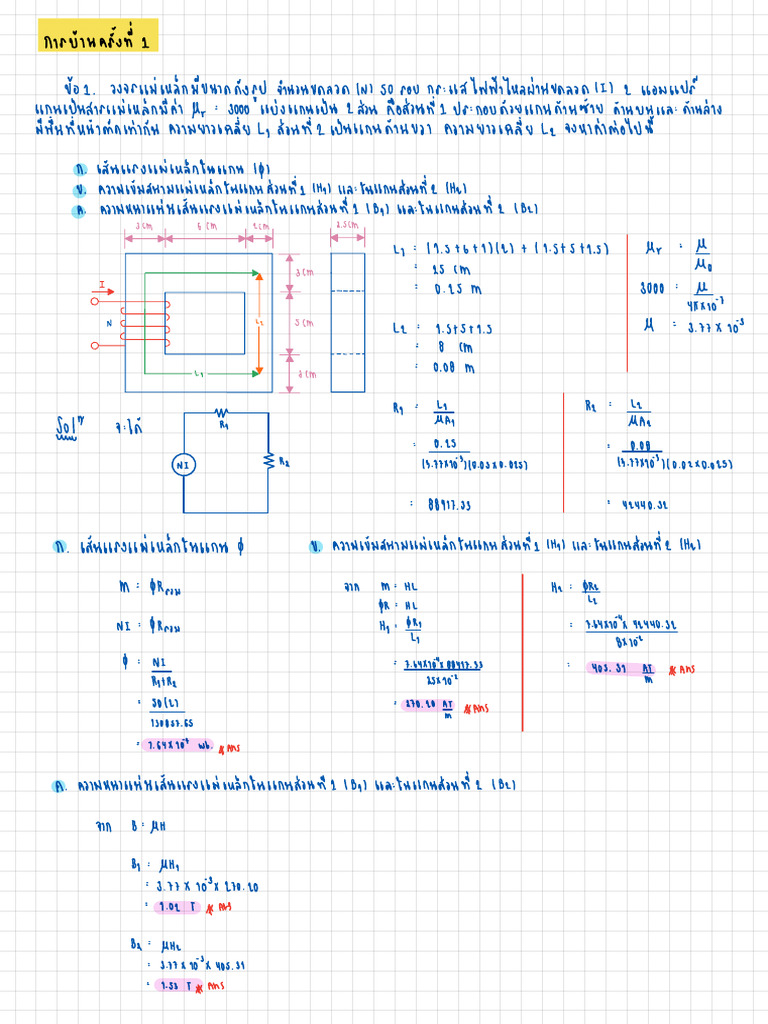 การบ้านครั้งที่ 1
ข้อ 1. วงจรแม่เหล็กมีขนาดดังรูป จำนวนขดลวด (N) 50 รอบ กระแสไฟฟ้าไหลผ่านขดลวด (I) 2 แอมแปร์
แกนเป็นสารแม่เหล็กมีค่า μr = 3000 แบ่งแกนเป็น 2 ส่วน คือส่วนที่ 1 ประกอบด้วยแกนด้านซ้าย ด้านบนและด้านล่าง
มีพื้นที่หน้าตัดเท่ากัน ความยาวเฉลี่ย L1 ส่วนที่ 2 เป็นแกนด้านขวา ความยาวเฉลี่ย L2 จงหาค่าต่อไปนี้
ก. เส้นแรงแม่เหล็กในแกน (ϕ)
ข. ความเข้มสนามแม่เหล็กในแกนส่วนที่ 1 (H1) และในแกนส่วนที่ 2 (H2)
ค. ความหนาแน่นเส้นแรงแม่เหล็กในแกนส่วนที่ 1 (B1) และในแกนส่วนที่ 2 (B2)
3 cm 6 cm 2 cm 2.5 cm
I
N
L1
L2
3 cm
5 cm
3 cm
L1 = (1.5+6+1)(2) + (1.5+5+1.5)
= 25 cm
= 0.25 m
L2 = 1.5+5+1.5
= 8 cm
= 0.08 m
μr = μ / μ0
3000 = μ / 4π×10⁻⁷
μ = 3.77 × 10⁻³
Solⁿ จะได้
NI
R1
R2
R1 = L1 / μA1
= 0.25 / (3.77×10⁻³)(0.03×0.025)
= 88417.33
R2 = L2 / μA2
= 0.08 / (3.77×10⁻³)(0.02×0.025)
= 42440.32
ก. เส้นแรงแม่เหล็กในแกน ϕ
m = ϕRรวม
NI = ϕRรวม
ϕ = NI / R1+R2
= 50(2) / 130857.65
= 7.64×10⁻⁴ wb. ※Ans
ข. ความเข้มสนามแม่เหล็กในแกนส่วนที่ 1 (H1) และในแกนส่วนที่ 2 (H2)
จาก m = HL
ϕR = HL
H1 = ϕR1 / L1
= 7.64×10⁻⁴×88417.33 / 25×10⁻²
= 270.20 AT/m ※Ans
H2 = ϕR2 / L2
= 7.64×10⁻⁴ × 42440.32 / 8×10⁻²
= 405.31 AT/m ※Ans
ค. ความหนาแน่นเส้นแรงแม่เหล็กในแกนส่วนที่ 1 (B1) และในแกนส่วนที่ 2 (B2)
จาก B = μH
B1 = μH1
= 3.77 × 10⁻³ × 270.20
= 1.02 T ※Ans
B2 = μH2
= 3.77 × 10⁻³ × 405.31
= 1.53 T ※Ans